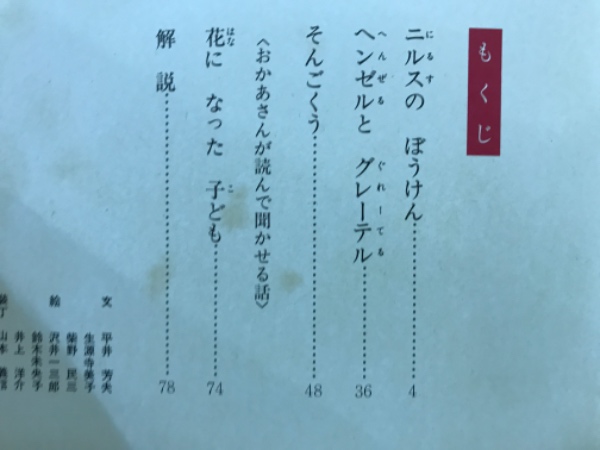 もくじ
ニルスの ぼうけん……4
ヘンゼルと グレーテル……36
そんごくう……48
〈おかあさんが読んで聞かせる話〉
花に なった 子ども……74
解説……78
文 平井 芳夫
生源寺美子
柴野 民三
絵 沢井一三郎
鈴木未央子
井上 洋介
山本